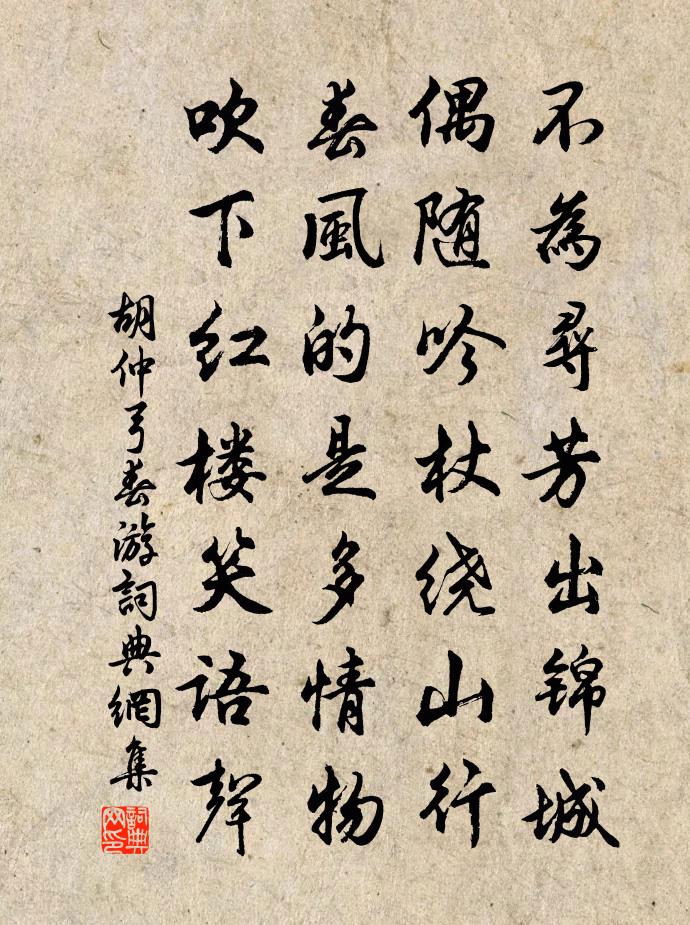 不為尋芳出锦城
偶随吟杖绕山行
春風的是多情物
吹下红楼笑語聲
胡仲弓春游詞典網集
詞典網印